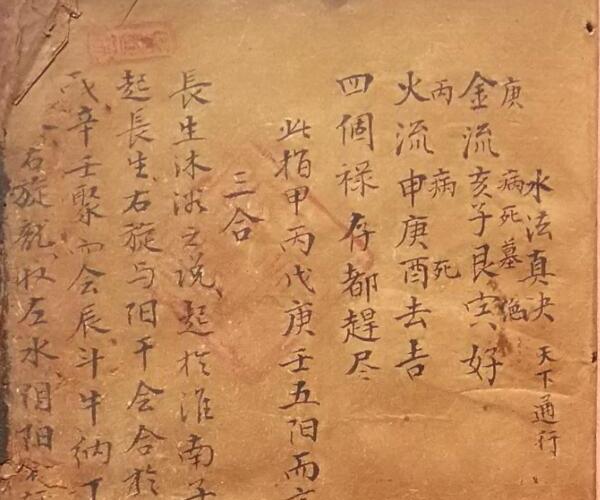 水法真决 天下通行
庚 病死墓绝
金流亥子艮寅好
丙 病 死
火流申庚酉去吉
四個禄存都趕尽
此指甲丙戊庚壬五阳而
三合
長生沐浴之说起於淮南子
起長生右旋与阳干会合於
辛壬聚而会辰斗牛纳丁
右旋龍收左水阴阳